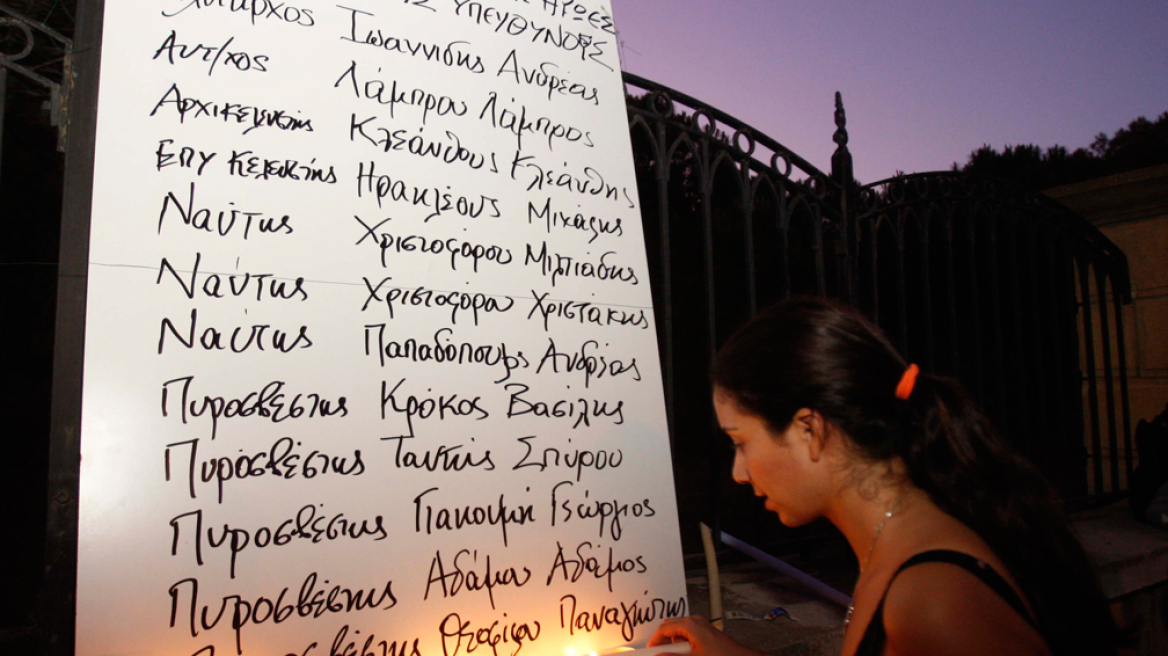 ΗΡΩΕΣ
ΥΠΕΥΘΥΝΟΥΣ
Ιωαννίδης Ανδρέας
Αντ/χος Λάμπρου Λάμπρος
Αρχικελευστής Κλεάνθους Κλεάνθης
Επικελευστής Ηρακλέους Μιχάλης
Ναύτης Χριστοφόρου Μιλτιάδης
Ναύτης Χριστοφόρου Χριστάκης
Ναύτης Παπαδόπουλος Ανδρέας
Πυροσβέστης Κρόκος Βασίλης
Πυροσβέστης Ταντής Σπύρου
Πυροσβέστης Γιακουμή Γεώργιος
Πυροσβέστης Αδάμου Αδάμος
Παναγιώτης